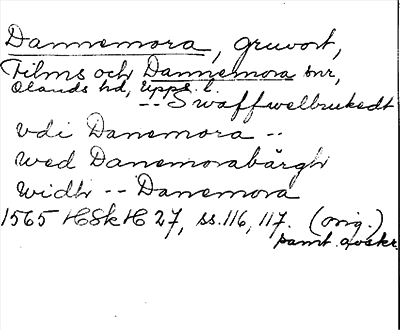 Dannemora, gruvort,
Films och Dannemora snr,
Olands hd, Upps. l.
-- Swaffwelbrukedt
vdi Danemora --
wed Danemorabärgh
widh -- Danemora
1565 HSkH 27, ss. 116, 117. (orig.)
samt. avskr.